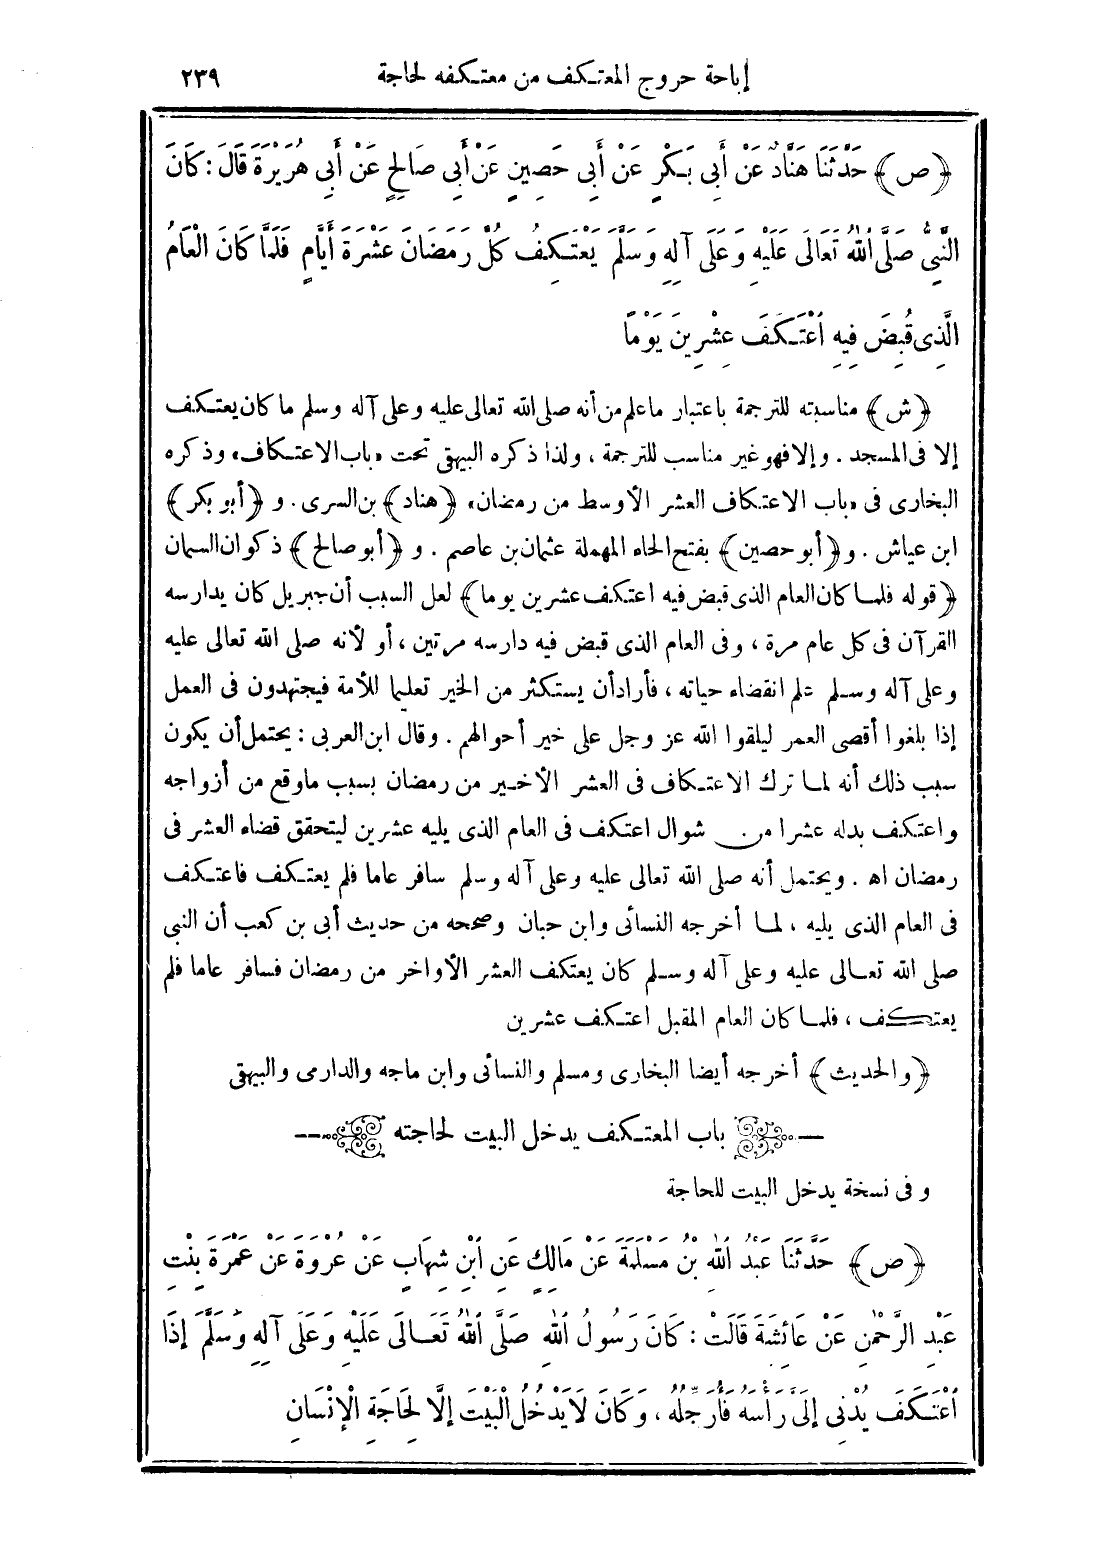 إباحة خروج المعتكف من معتكفه لحاجة ٢٣٩
﴿ص﴾ حَدَّثَنَا هَنَّادٌ عَنْ أَبِى بَكْرٍ عَنْ أَبِى حَصِينٍ عَنْ أَبِى صَالِحٍ عَنْ أَبِى هُرَيْرَةَ قَالَ : كَانَ
النَّبِىُّ صَلَّى اللهُ تَعَالَى عَلَيْهِ وَعَلَى آلِهِ وَسَلَّمَ يَعْتَكِفُ كُلَّ رَمَضَانَ عَشْرَةَ أَيَّامٍ فَلَمَّا كَانَ الْعَامُ
الَّذِى قُبِضَ فِيهِ اعْتَكَفَ عِشْرِينَ يَوْمًا
﴿ش﴾ مناسبته للترجمة باعتبار ماعلم من أنه صلى الله تعالى عليه وعلى آله وسلم ما كان يعتكف
إلا فى المسجد . وإلا فهو غير مناسب للترجمة ، ولذا ذكره البيهقى تحت «باب الاعتكاف» وذكره
البخارى فى «باب الاعتكاف العشر الأوسط من رمضان» ﴿هناد﴾ بن السرى . و ﴿أبو بكر﴾
ابن عياش . و﴿أبو حصين﴾ بفتح الحاء المهملة عثمان بن عاصم . و ﴿أبو صالح﴾ ذكوان السمان
﴿قوله فلما كان العام الذى قبض فيه اعتكف عشرين يوما﴾ لعل السبب أن جبريل كان يدارسه
القرآن فى كل عام مرة ، وفى العام الذى قبض فيه دارسه مرتين ، أو لأنه صلى الله تعالى عليه
وعلى آله وسلم علم انقضاء حياته ، فأراد أن يستكثر من الخير تعليما للأمة فيجتهدون فى العمل
إذا بلغوا أقصى العمر ليلقوا الله عز وجل على خير أحوالهم . وقال ابن العربى : يحتمل أن يكون
سبب ذلك أنه لما ترك الاعتكاف فى العشر الأخير من رمضان بسبب ماوقع من أزواجه
واعتكف بدله عشرا من شوال اعتكف فى العام الذى يليه عشرين ليتحقق قضاء العشر فى
رمضان اه . ويحتمل أنه صلى الله تعالى عليه وعلى آله وسلم سافر عاما فلم يعتكف فاعتكف
فى العام الذى يليه ، لما أخرجه النسائى وابن حبان وصححه من حديث أبى بن كعب أن النبى
صلى الله تعالى عليه وعلى آله وسلم كان يعتكف العشر الأواخر من رمضان فسافر عاما فلم
يعتكف ، فلما كان العام المقبل اعتكف عشرين
﴿والحديث﴾ أخرجه أيضا البخارى ومسلم والنسائى وابن ماجه والدارمى والبيهقى
باب المعتكف يدخل البيت لحاجته
وفى نسخة يدخل البيت للحاجة
﴿ص﴾ حَدَّثَنَا عَبْدُ اللهِ بْنُ مَسْلَمَةَ عَنْ مَالِكٍ عَنِ ابْنِ شِهَابٍ عَنْ عُرْوَةَ عَنْ عَمْرَةَ بِنْتِ
عَبْدِ الرَّحْمٰنِ عَنْ عَائِشَةَ قَالَتْ : كَانَ رَسُولُ اللهِ صَلَّى اللهُ تَعَالَى عَلَيْهِ وَعَلَى آلِهِ وَسَلَّمَ إِذَا
اعْتَكَفَ يُدْنِى إِلَىَّ رَأْسَهُ فَأُرَجِّلُهُ ، وَكَانَ لَا يَدْخُلُ الْبَيْتَ إِلَّا لِحَاجَةِ الْإِنْسَانِ